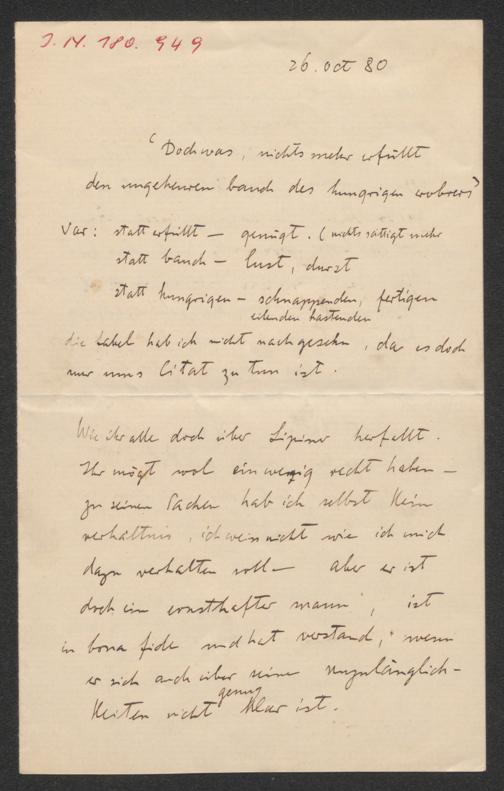 J. N. 180. 949
26. oct 80
"Doch was, nichts mehr erfüllt
den ungeheuren bauch des hungrigen erobrers"
Var: statt erfüllt — genügt. (nichts sättigt mehr
statt bauch — lust, durst
statt hungrigen — schnappenden, fertigen
eilenden hastenden
die fabel hab ich nicht nachgesehn, da es doch
nur ums Citat zu tun ist.
Wie ihr alle doch über Lipiner herfallt.
Ihr mögt wol ein wenig recht haben —
zu seinen Sachen hab ich selbst kein
verhältnis, ich weiss nicht wie ich mich
dazu verhalten soll — aber er ist
doch ein ernsthafter mann, ist
in bona fide und hat verstand, wenn
er sich auch über seine unzulänglich-
keiten nicht genug klar ist.